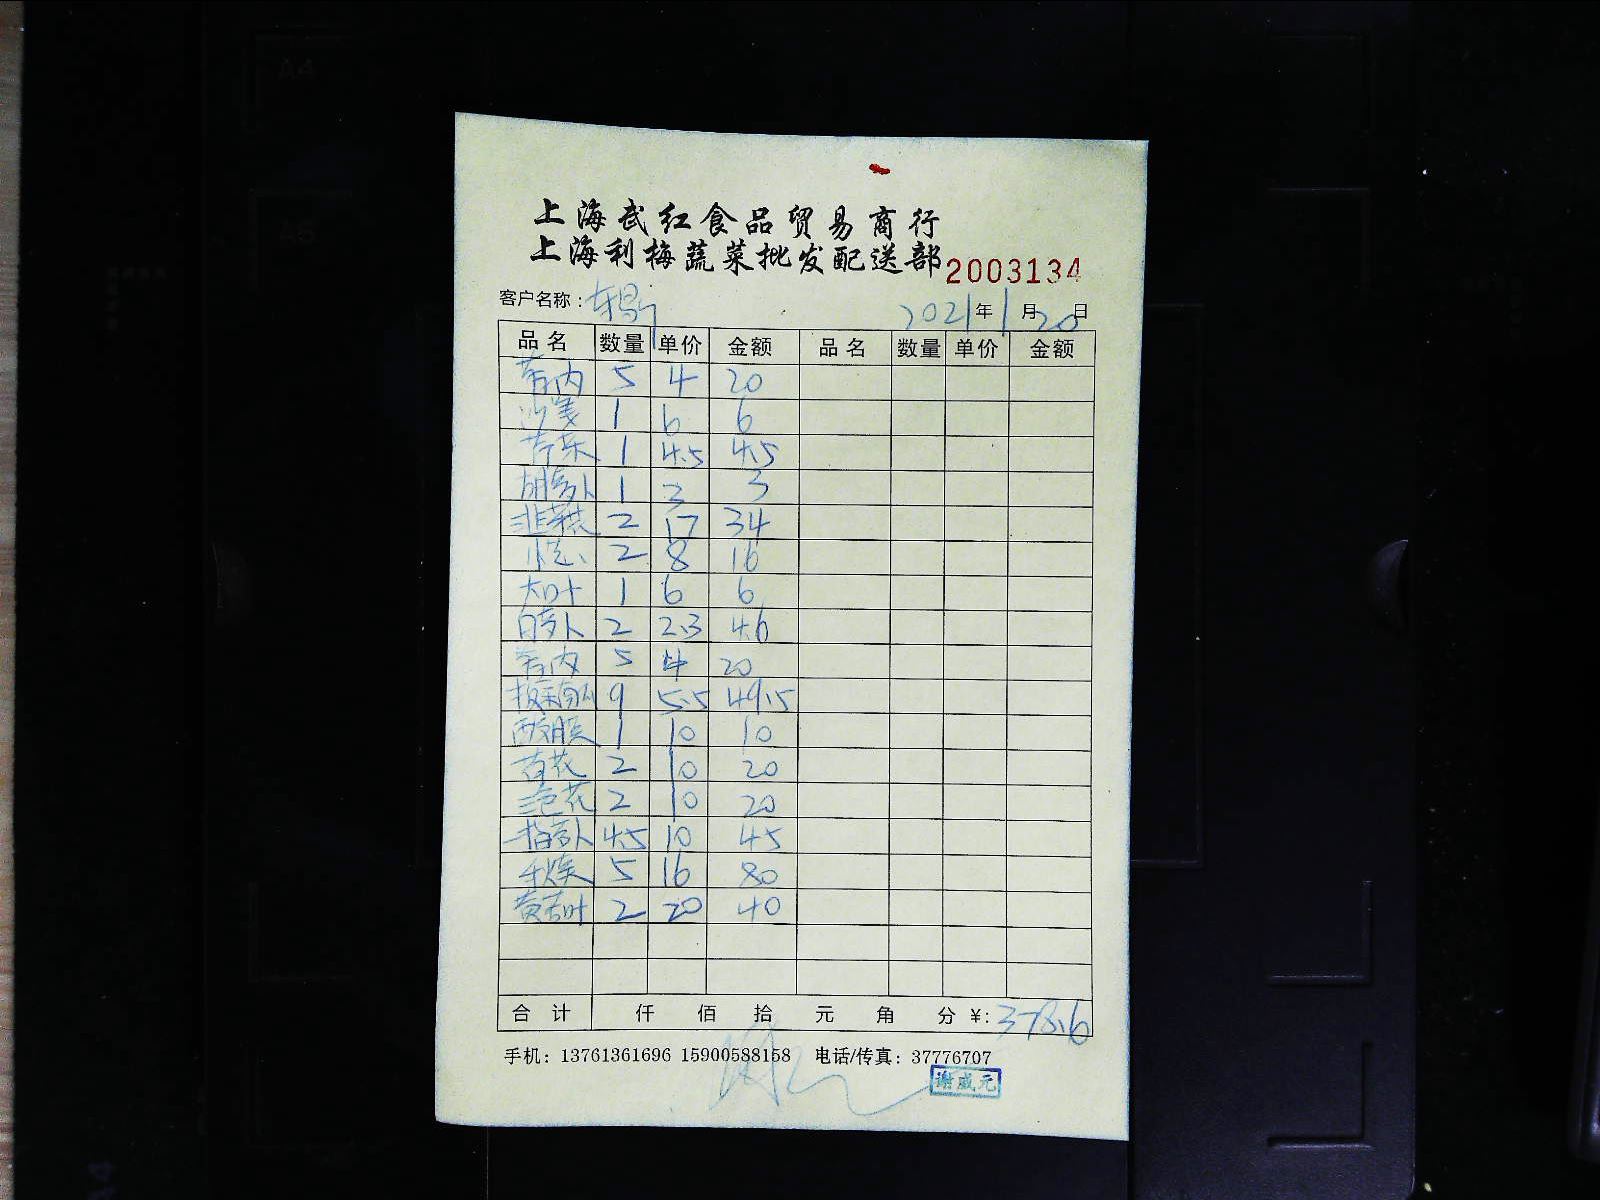 上海武红食品贸易商行
上海利梅蔬菜批发配送部 2003134
客户名称： 2021年1月20日
品名 数量 单价 金额 品名 数量 单价 金额
5 4 20
1 6 6
1 4.5 4.5
胡萝卜 1 3 3
韭菜 2 17 34
小葱 2 8 16
大叶 1 6 6
白萝卜 2 2.3 4.6
5 4 20
板栗南瓜 9 5.5 49.5
1 10 10
2 10 20
三色花 2 10 20
指萝卜 4.5 10 45
5 16 80
黄苦叶 2 20 40
合计 仟 佰 拾 元 角 分 ¥: 378.6
手机：13761361696 15900588158 电话/传真：37776707
谢威元